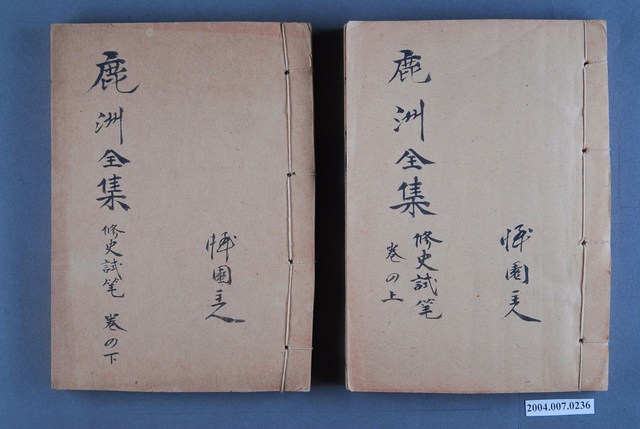 鹿洲全集
修史試笔
卷の上
園主人
鹿洲全集 修史試笔 卷の下
園主人
2004.007.0236